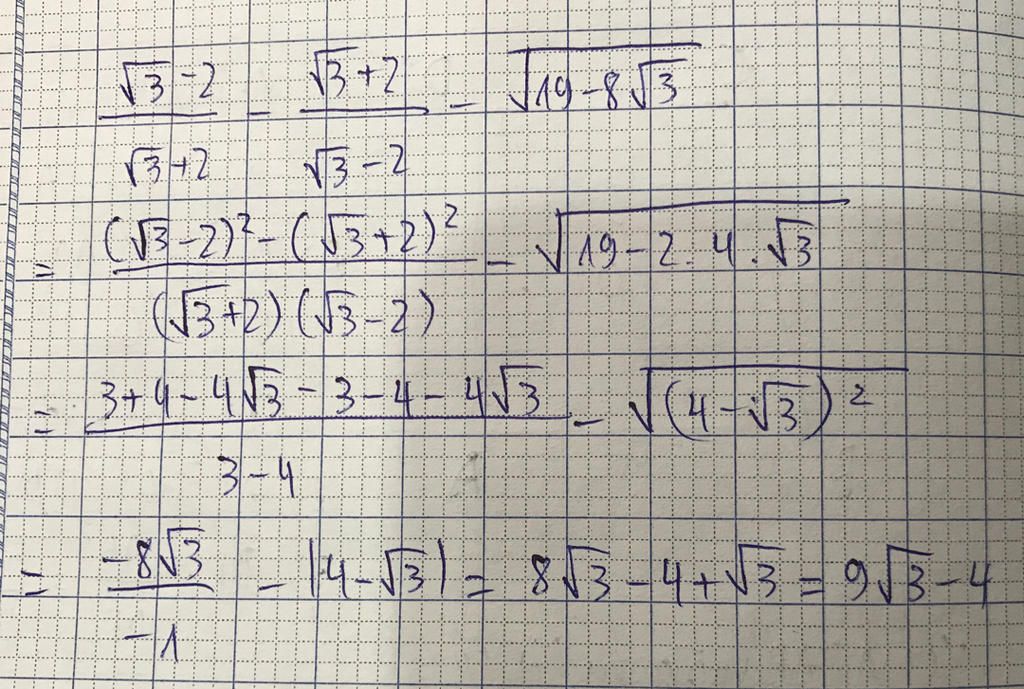 (√3 - 2)/(√3 + 2) - (√3 + 2)/(√3 - 2) - √(19 - 8√3)
= ((√3 - 2)² - (√3 + 2)²)/((√3 + 2)(√3 - 2)) - √(19 - 2 . 4 . √3)
= (3 + 4 - 4√3 - 3 - 4 - 4√3)/(3 - 4) - √((4 - √3)²)
= (-8√3)/(-1) - |4 - √3| = 8√3 - 4 + √3 = 9√3 - 4